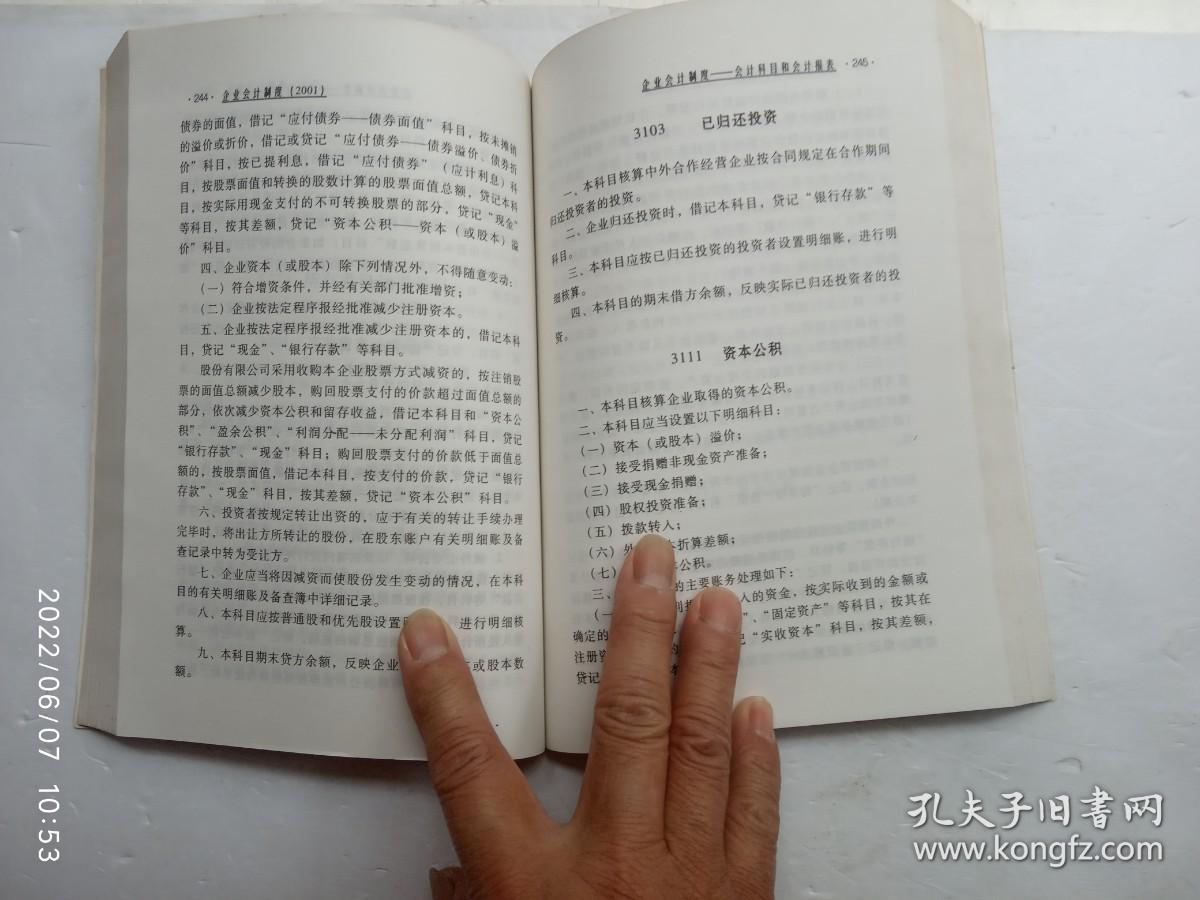 ·244· 企业会计制度(2001)
债券的面值，借记“应付债券——债券面值”科目，按未摊销
的溢价或折价，借记或贷记“应付债券——债券溢价、债券折
价”科目，按已提利息，借记“应付债券”（应计利息）科
目，按股票面值和转换的股数计算的股票面值总额，贷记本科
目，按实际用现金支付的不可转换股票的部分，贷记“现金”
等科目，按其差额，贷记“资本公积——资本（或股本）溢
价”科目。
四、企业资本（或股本）除下列情况外，不得随意变动：
（一）符合增资条件，并经有关部门批准增资；
（二）企业按法定程序报经批准减少注册资本。
五、企业按法定程序报经批准减少注册资本的，借记本科
目，贷记“现金”、“银行存款”等科目。
股份有限公司采用收购本企业股票方式减资的，按注销股
票的面值总额减少股本，购回股票支付的价款超过面值总额的
部分，依次减少资本公积和留存收益，借记本科目和“资本公
积”、“盈余公积”、“利润分配——未分配利润”科目，贷记
“银行存款”、“现金”科目；购回股票支付的价款低于面值总
额的，按股票面值，借记本科目，按支付的价款，贷记“银行
存款”、“现金”科目，按其差额，贷记“资本公积”科目。
六、投资者按规定转让出资的，应于有关的转让手续办理
完毕时，将出让方所转让的股份，在股东账户有关明细账及备
查记录中转为受让方。
七、企业应当将因减资而使股份发生变动的情况，在本科
目的有关明细账及备查簿中详细记录。
八、本科目应按普通股和优先股设置 进行明细核
算。
九、本科目期末贷方余额，反映企业 或股本数
额。
企业会计制度——会计科目和会计报表 ·245·
3103 已归还投资
一、本科目核算中外合作经营企业按合同规定在合作期间
归还投资者的投资。
二、企业归还投资时，借记本科目，贷记“银行存款”等
科目。
三、本科目应按已归还投资的投资者设置明细账，进行明
细核算。
四、本科目的期末借方余额，反映实际已归还投资者的投
资。
3111 资本公积
一、本科目核算企业取得的资本公积。
二、本科目应当设置以下明细科目：
（一）资本（或股本）溢价；
（二）接受捐赠非现金资产准备；
（三）接受现金捐赠；
（四）股权投资准备；
（五）拨款转入；
（六）外 折算差额；
（七） 公积。
三、 的主要账务处理如下：
（一） 人的资金，按实际收到的金额或
确定的 、“固定资产”等科目，按其在
注册资 的 “实收资本”科目，按其差额，
贷记 本
2022/06/07 10:53
孔夫子旧书网
www.kongfz.com